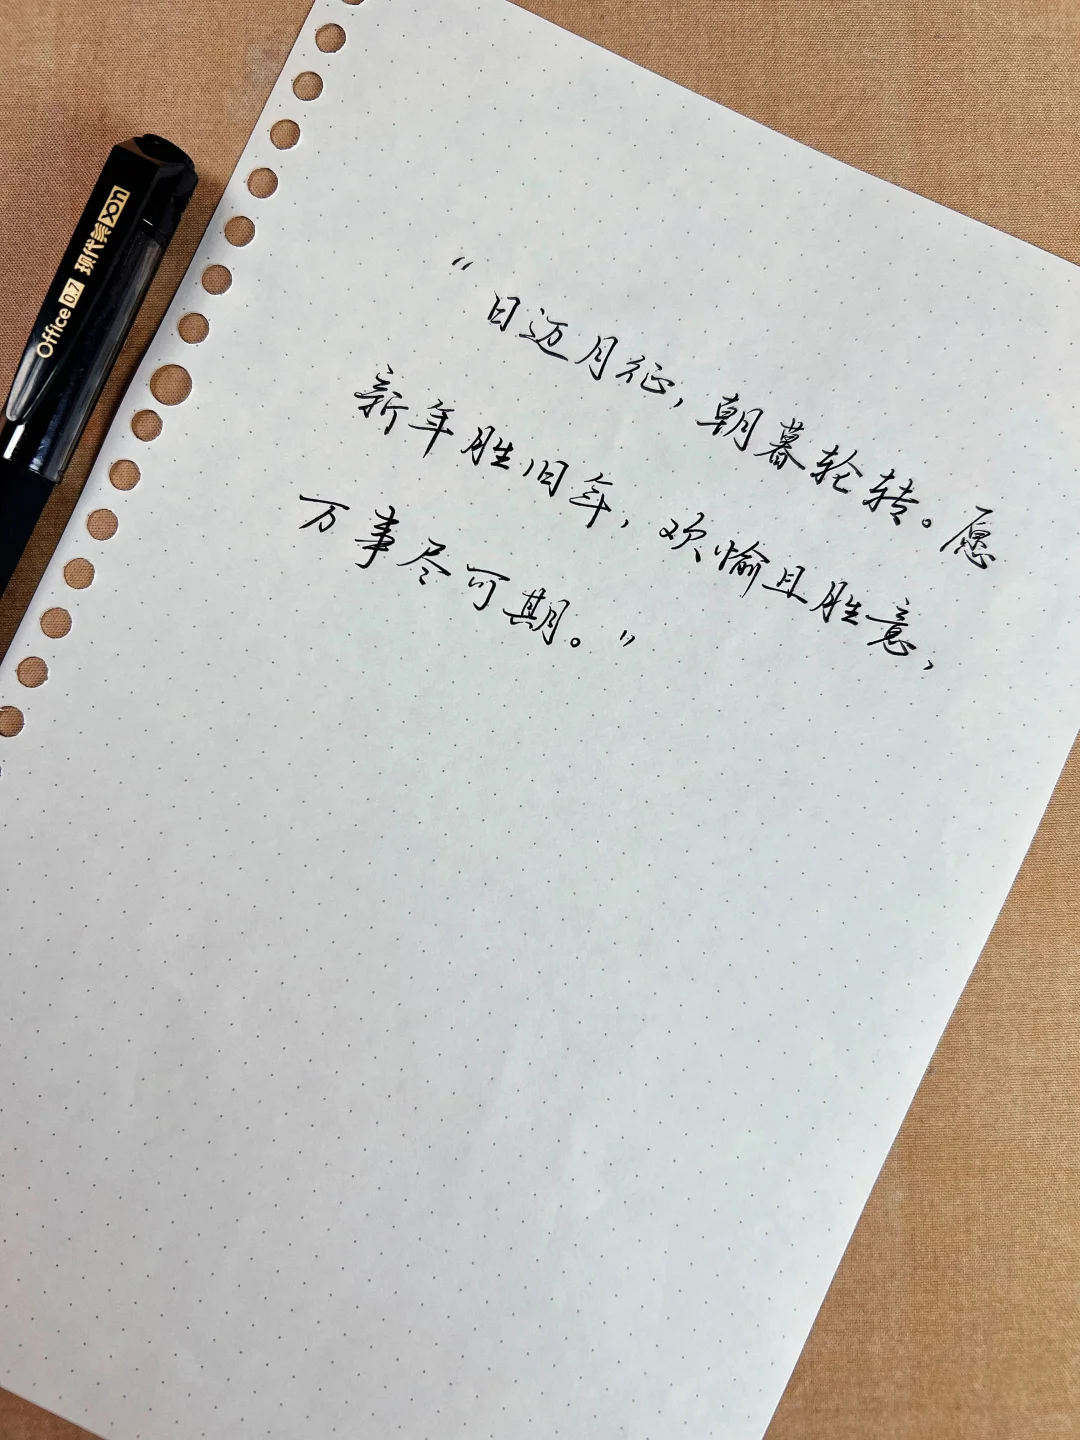 “日迈月征，朝暮轮转。愿
新年胜旧年，欢愉且胜意，
万事尽可期。”
Office 0.7 现代美